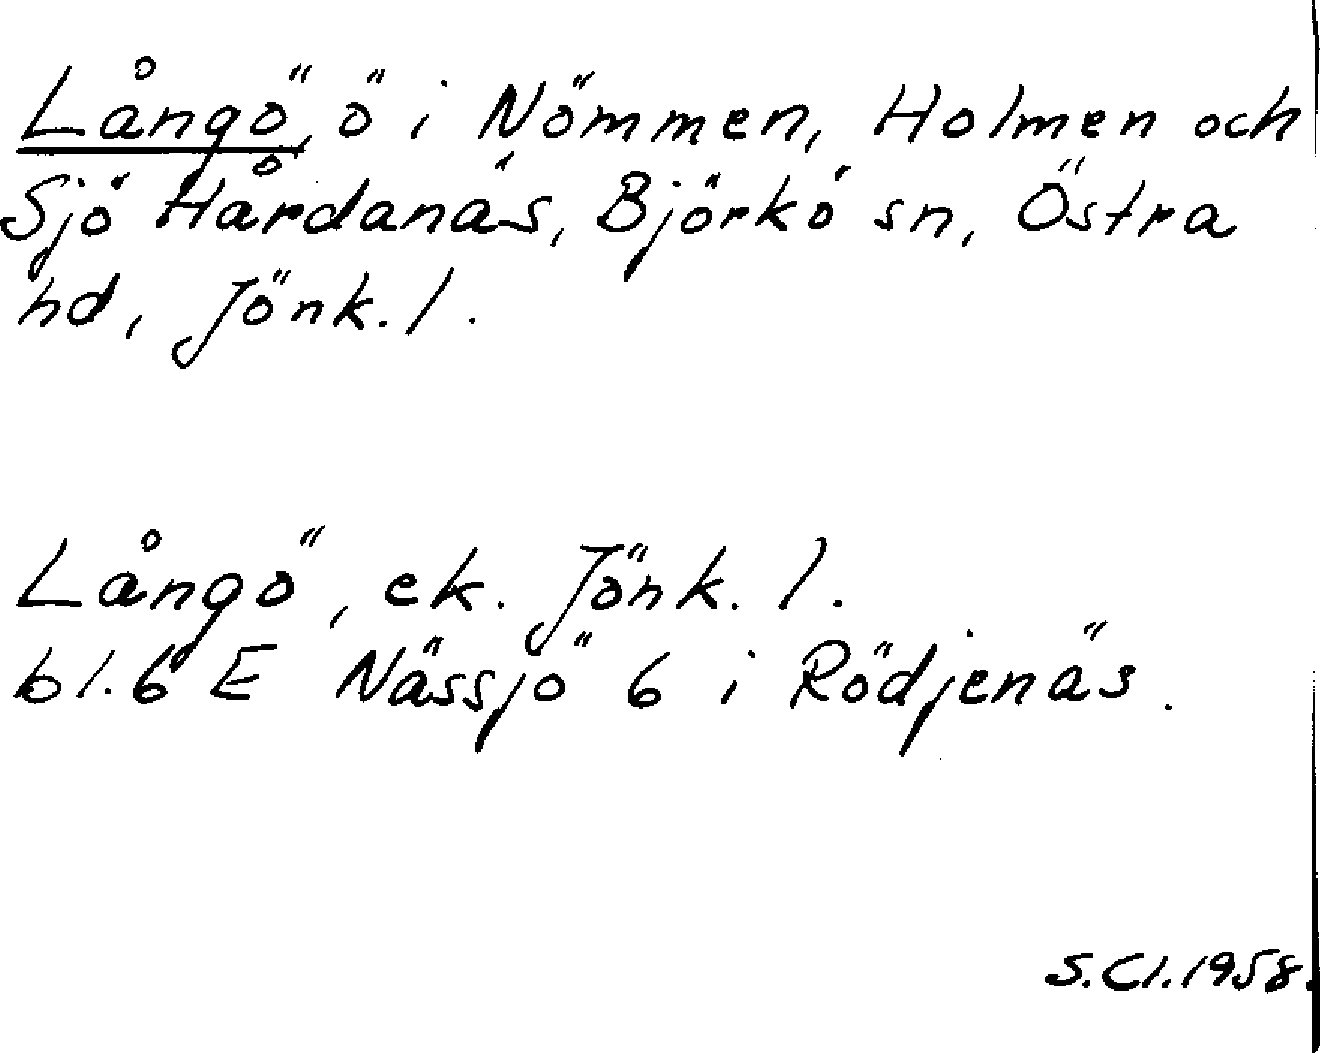 Långö, ö i Nömmen, Holmen och
Sjö Hårdanäs, Björkö sn, Östra
hd, Jönk. l.
Långö, ek. Jönk. l.
bl. 6 E Nässjö 6 i Rödjenäs.
S. Cl. 1958.